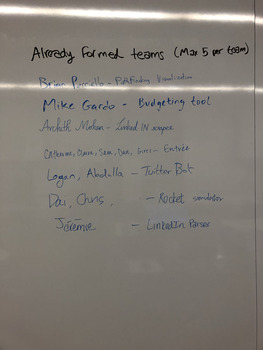 Already formed teams (Max 5 per team)
Brian - Pathfinding Visualization
Mike Gardo - Budgeting tool
Archith Mohan - Linked IN
Catherine, Claire, Sam, Dan, - Entrée
Logan, Abdulla - Twitter Bot
Dai, Chris, - Rocket simulator
Jérémie - LinkedIn Parser